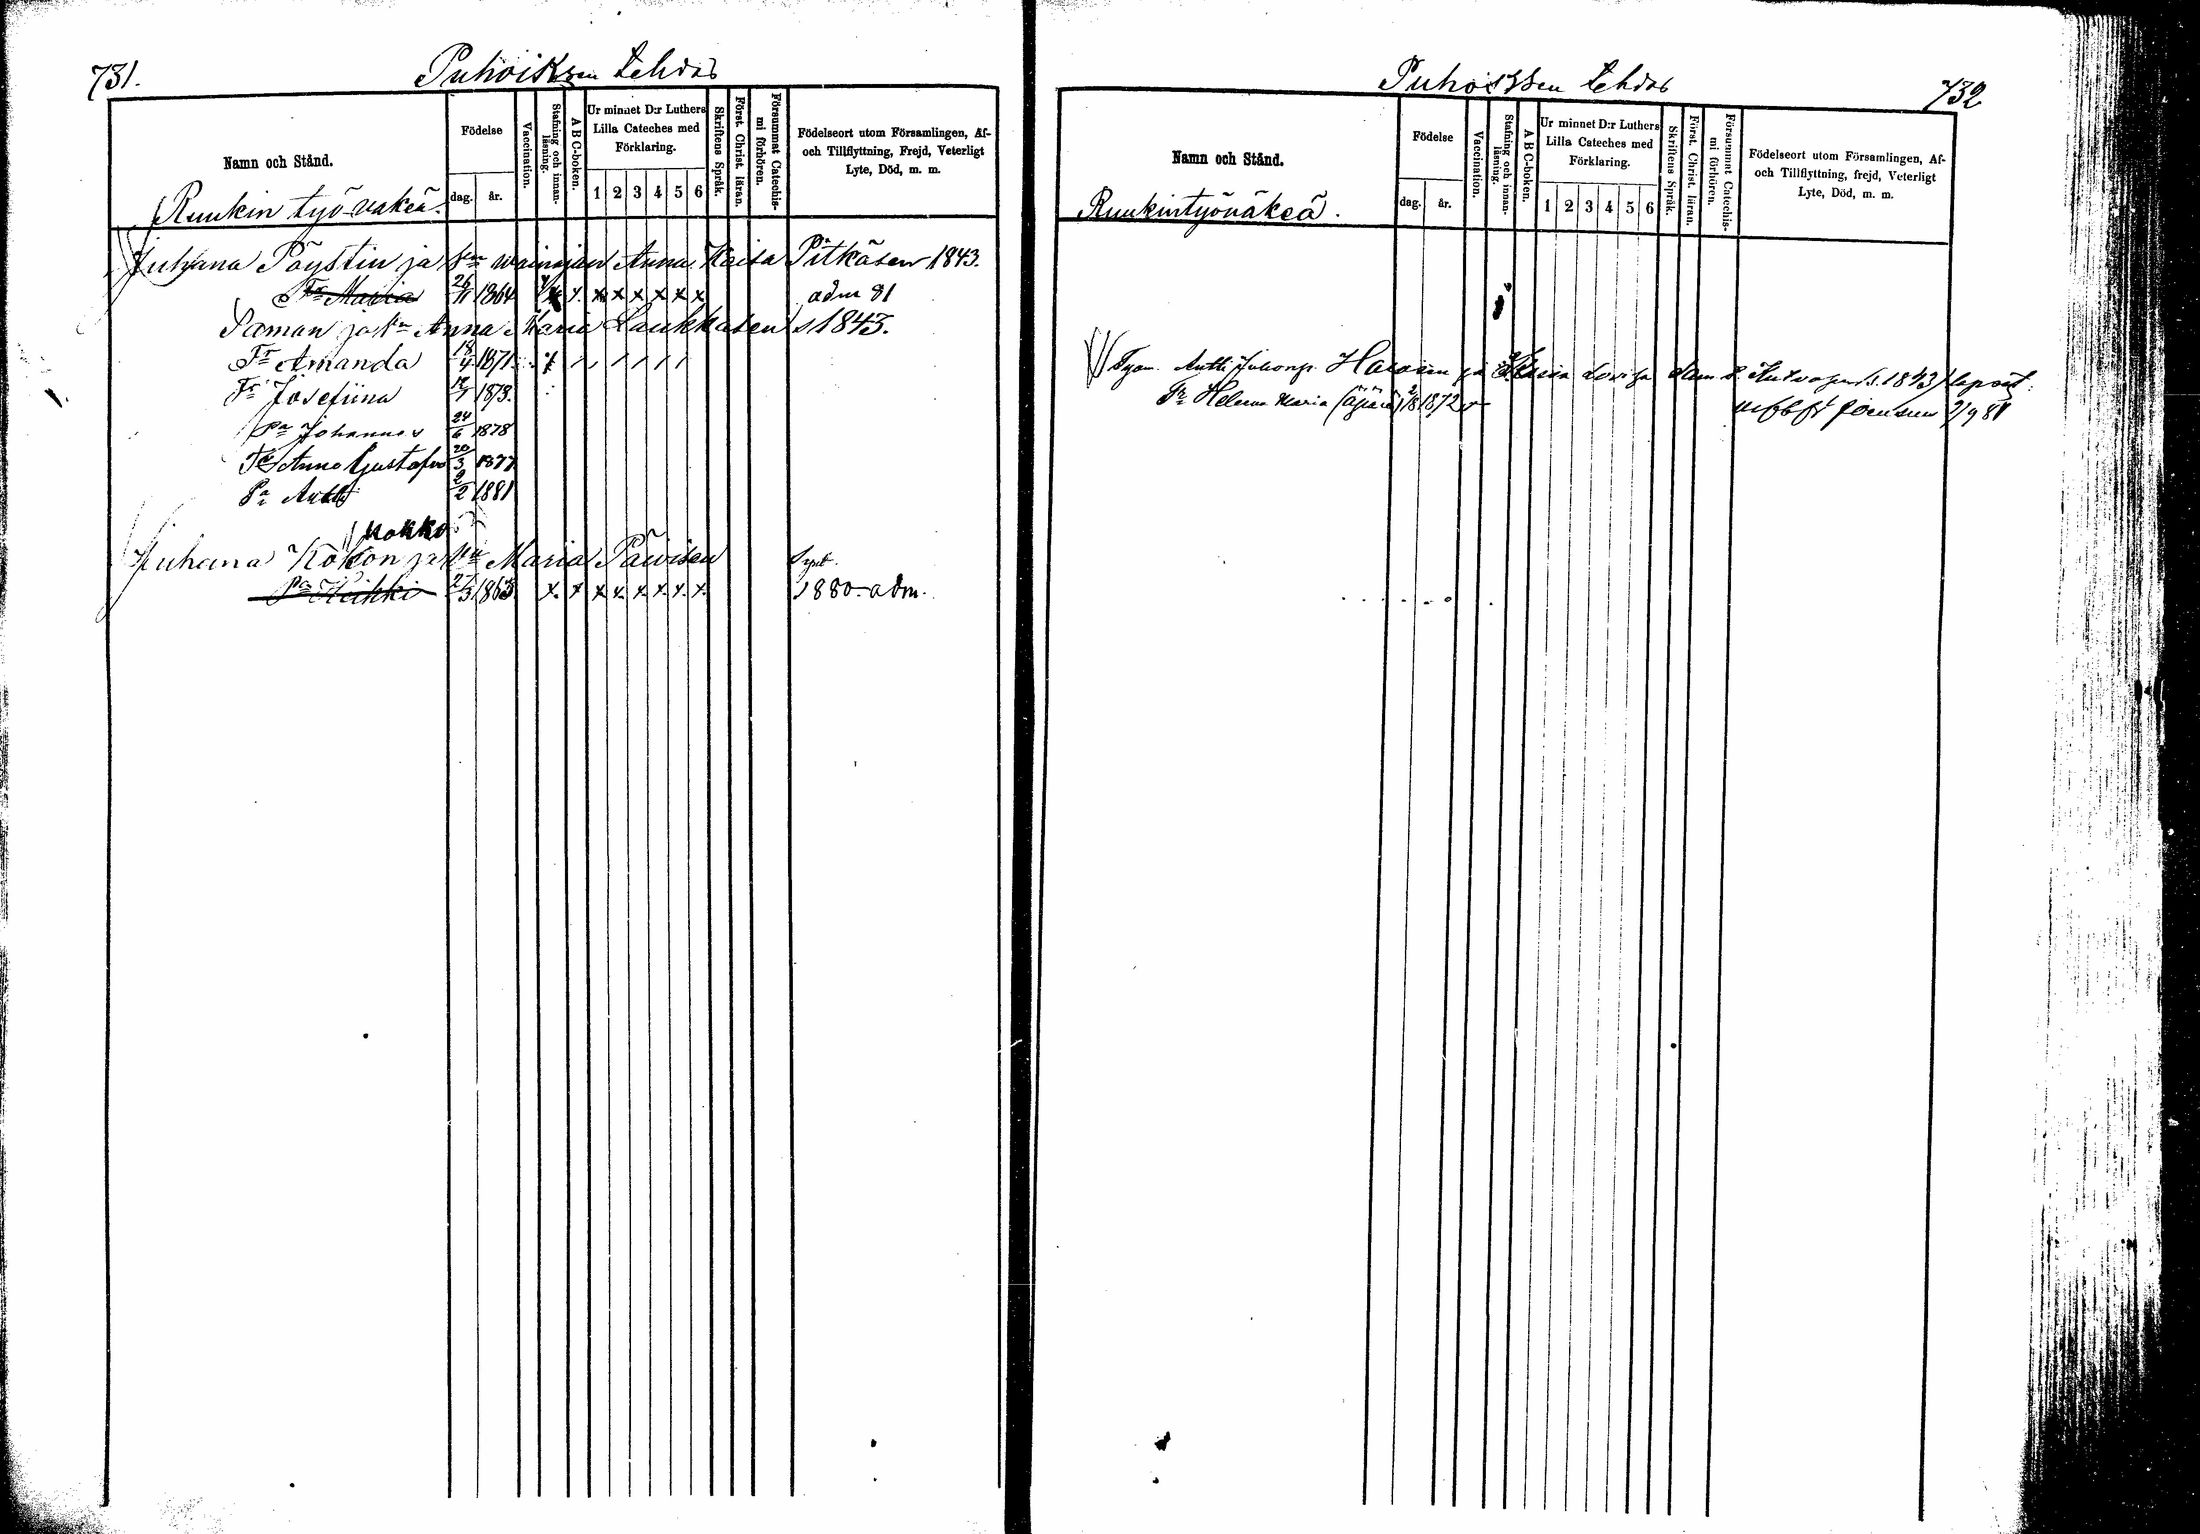 731.
Puhoiksen tehdas
Namn och Stånd.
Födelse
dag.
år.
Vaccination.
Stafning och innan-
läsning.
A B C-boken.
Ur minnet D:r Luthers
Lilla Cateches med
Förklaring.
1 2 3 4 5 6
Skriftens Språk.
Först. Christ. läran.
Försummat Catechis-
mi förhören.
Födelseort utom Församlingen, Af-
och Tillflyttning, Frejd, Veterligt
Lyte, Död, m. m.
Ruukin työväkeä.
Juhana Pöystin ja Sen wainajan Anna Kaisa Pitkäsen 1843.
Tr Maria 26/11 1864 x x x x x x x adm 81
Saman ja Sen Anna Maria Laukkasen s 1843.
Tr Amanda 18/4 1871
Tr Josefiina 1873.
Pa Johannes 24/6 1878
Tr Anna Gustafva 20/3 1877
Pa Antti 2/2 1881
Kokko
Juhana Kokon ja Sen Maria Päivisen Synt.
Pa Heikki 27/3 1863 x x x x x x x x 1880 adm.
Puhoiksen tehdas
732
Namn och Stånd.
Födelse
dag.
år.
Vaccination.
Stafning och innan-
läsning.
A B C-boken.
Ur minnet D:r Luthers
Lilla Cateches med
Förklaring.
1 2 3 4 5 6
Skriftens Språk.
Först. Christ. läran.
Försummat Catechis-
mi förhören.
Födelseort utom Församlingen, Af-
och Tillflyttning, frejd, Veterligt
Lyte, Död, m. m.
Ruukintyöväkeä.
Antti Juhonp. ja Maria Lovisa s. 1843) lapset:
Tr Helena Maria (Äpärä) 1872
Joensuu 9/9 81